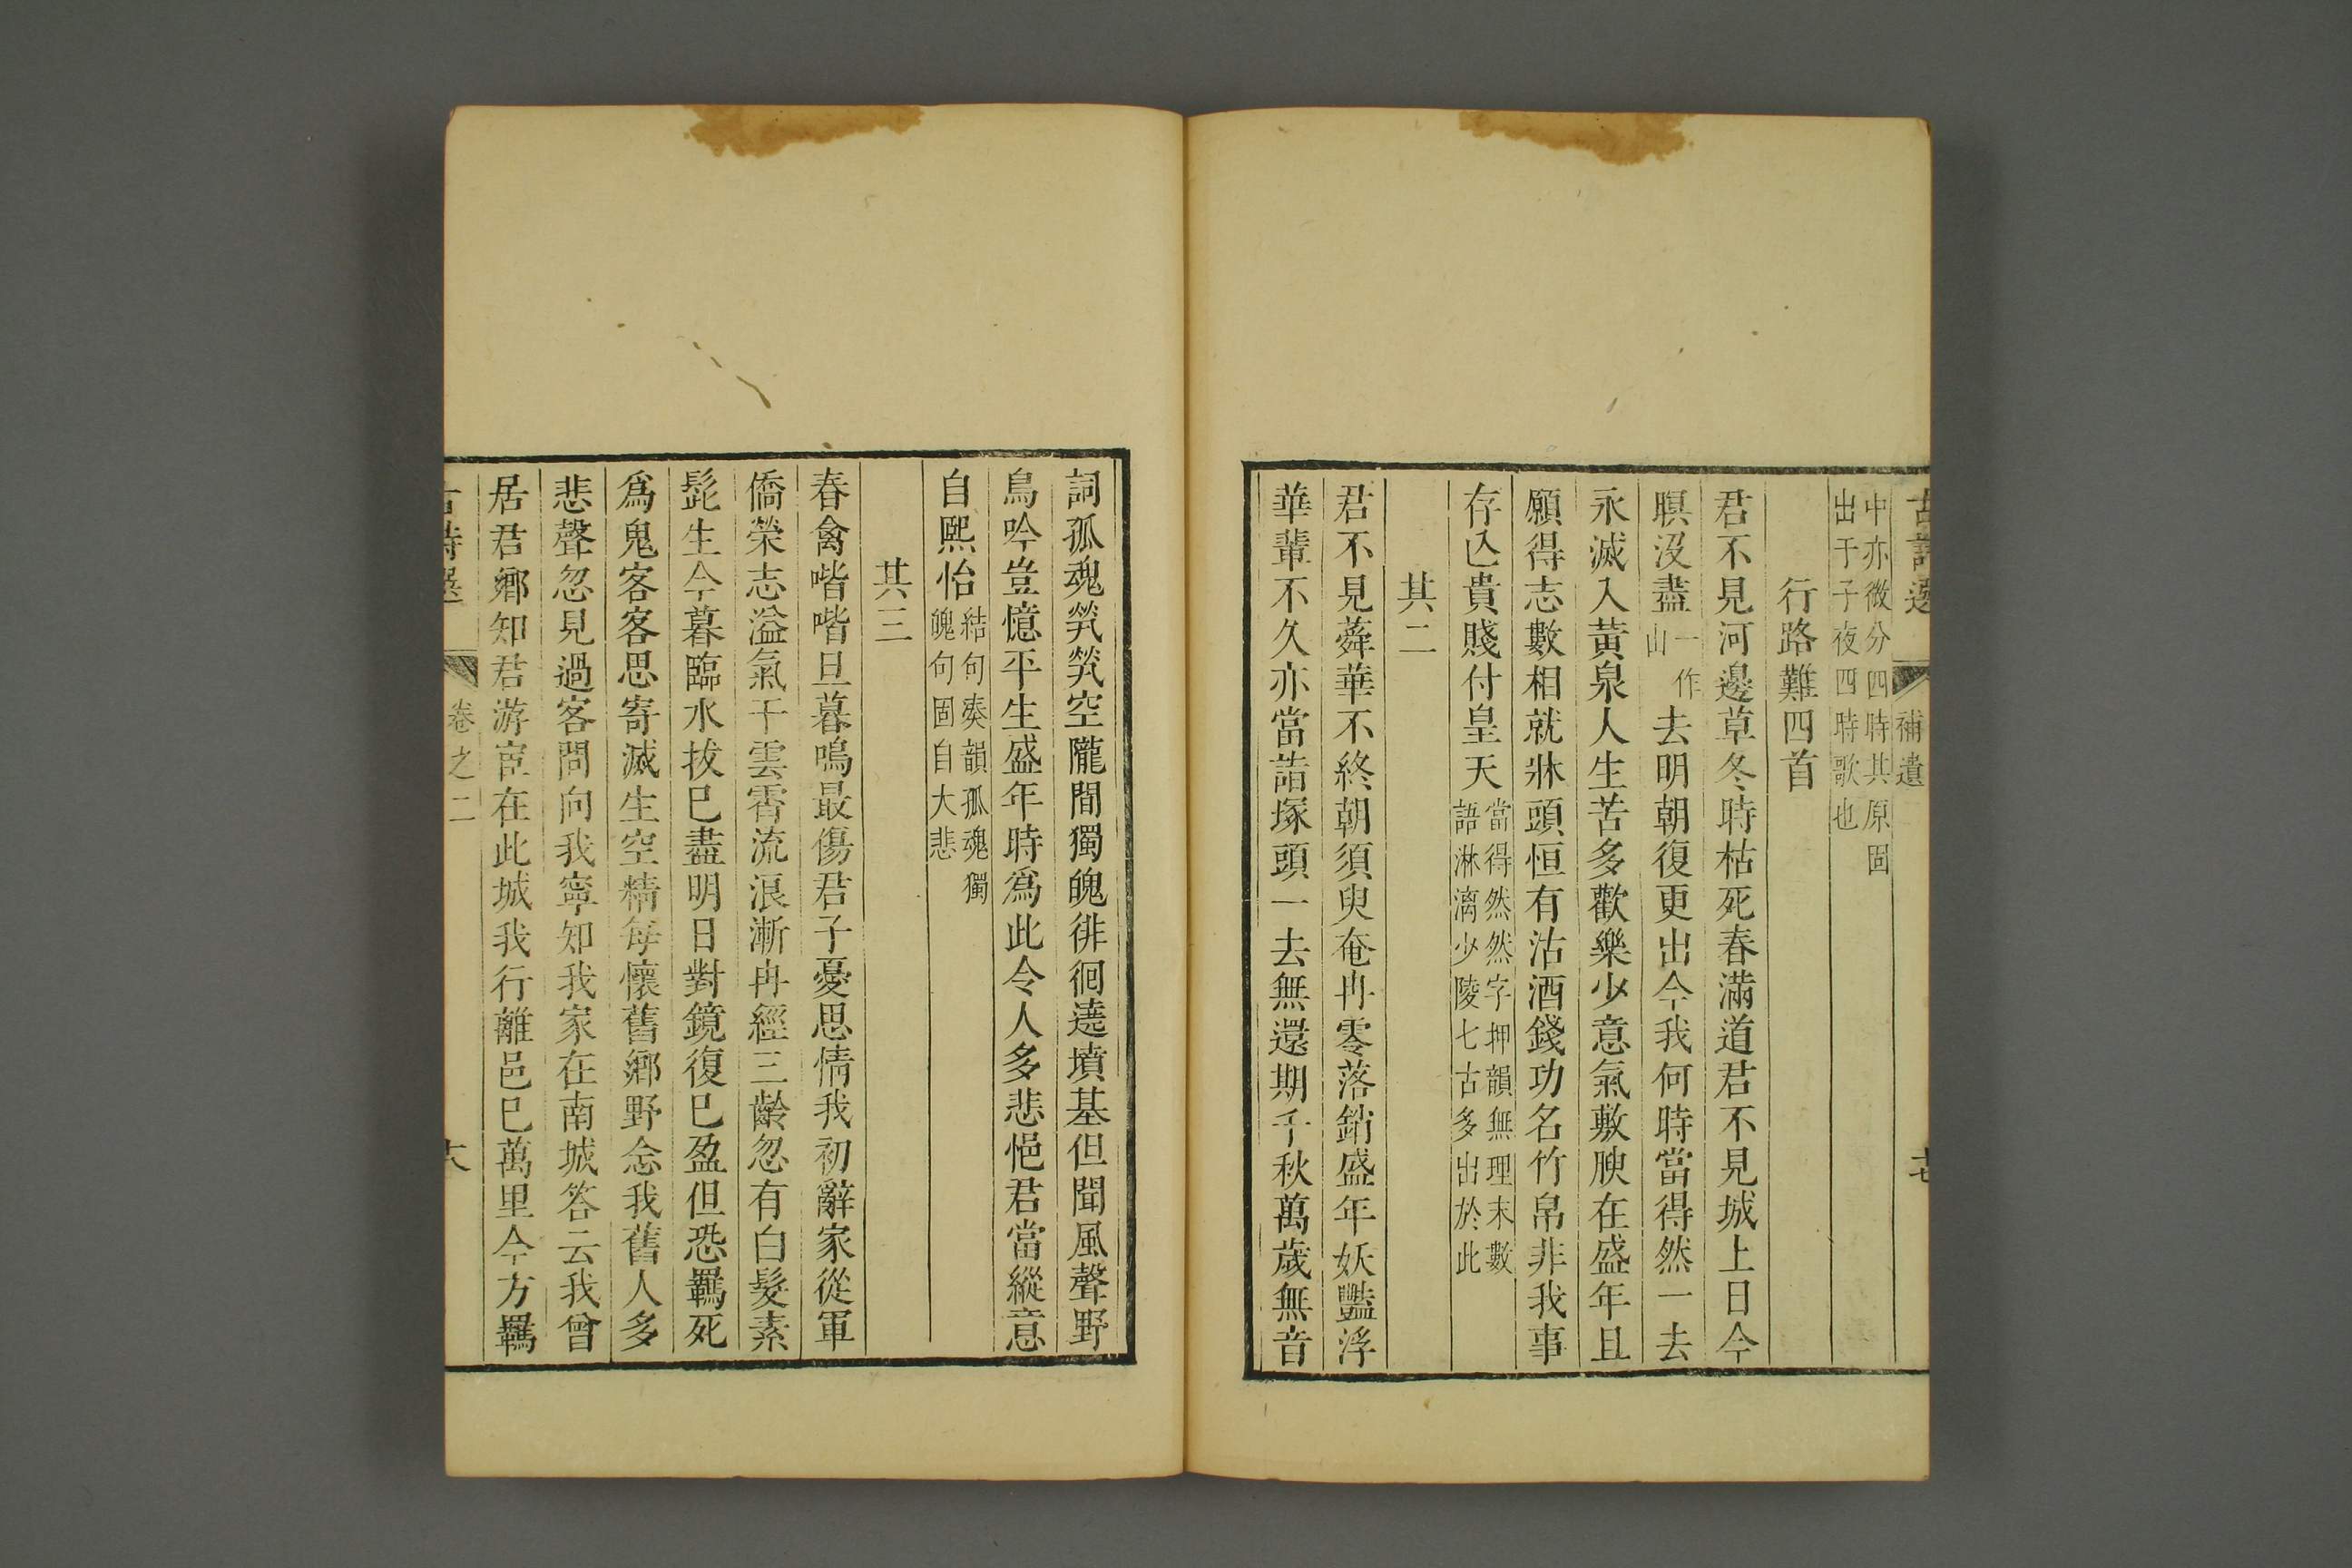 古詩選 補遺 十七
中亦微分四時其原固
出于子夜四時歌也
行路難四首
君不見河邊草冬時枯死春滿道君不見城上日今
瞑沒盡一作山去明朝復更出今我何時當得然一去
永滅入黃泉人生苦多歡樂少意氣敷腴在盛年且
願得志數相就牀頭恒有沽酒錢功名竹帛非我事
存亡貴賤付皇天當得然然字押韻無理末數
語淋漓少陵七古多出於此
其二
君不見蕣華不終朝須臾奄冉零落銷盛年妖豔浮
華輩不久亦當詣塚頭一去無還期千秋萬歲無音
詞孤魂煢煢空隴間獨魄徘徊遶墳基但聞風聲野
鳥吟豈憶平生盛年時爲此令人多悲悒君當縱意
自熙怡結句奏韻孤魂獨
魄句固自大悲
其三
春禽喈喈旦暮鳴最傷君子憂思情我初辭家從軍
僑榮志溢氣干雲霄流浪漸冉經三齡忽有白髮素
髭生今暮臨水拔巳盡明日對鏡復巳盈但恐羈死
爲鬼客客思寄滅生空精每懷舊鄉野念我舊人多
悲聲忽見過客問向我寧知我家在南城答云我曾
居君鄉知君游宦在此城我行離邑巳萬里今方羈
古詩選 卷之二 十八